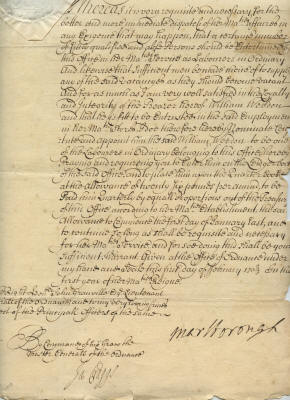 Whereas it is very requisite and necessary for the
better and more immediate dispatch of Her Ma:ties Affaires in
any Exigent that may happen, that a certaine number
of fitt qualified and able Persons should be Entertained in
this Office in Her Ma:ties Service as Labourers in Ordinary
and likewise that sufficient men bee in one of to supply
any of the said Vacancies as they shall become Vacant
and for as much as I am very well satisfied in the Loyalty
and Integrity of the Bearer hereof William Weston
and that he is fit to be Entrusted in the said Employment
in Her Ma:ties Service I doe therefore hereby Nominate Consti-
tute and appoint him the said William Weston to be one
of the Labourers in Ordinary belonging to this Office hereby
Praying and requiring you to Enter him in the
of the said Office, and to place him upon the Quarter Book
at the allowance of twenty Six pounds per annum to be
Paid him Quarterly by equall proportions out of the
this Office according to Her Ma:ties Establishment, the said
Allowance to Commence the first day of January last, and
to continue so long as shall be requisite and necessary
for Her Ma:ties Service, and for soe doing this shall be your
Sufficient Warrant. Given at the Office of Ordnance under
my hand and Seale this first day of February 1702 In the
first year of Her Ma:ties Reigne.
Right Hon:ble John Granville Esq Lieutenant
of the Ordnance and to my very Loving friends
rest of the Principall Officers of the same
Marlborough
By Command of his Grace the
Master Generall of the Ordnance